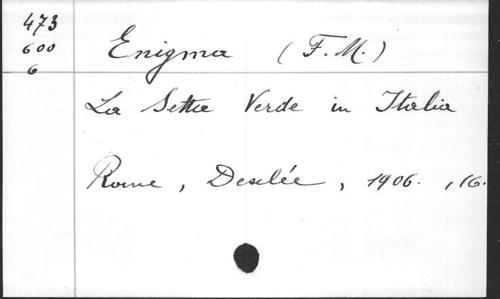 473
600
6
Enigma (F. M.)
La Setta Verde in Italia
Rome, Desclée, 1906. , 16.